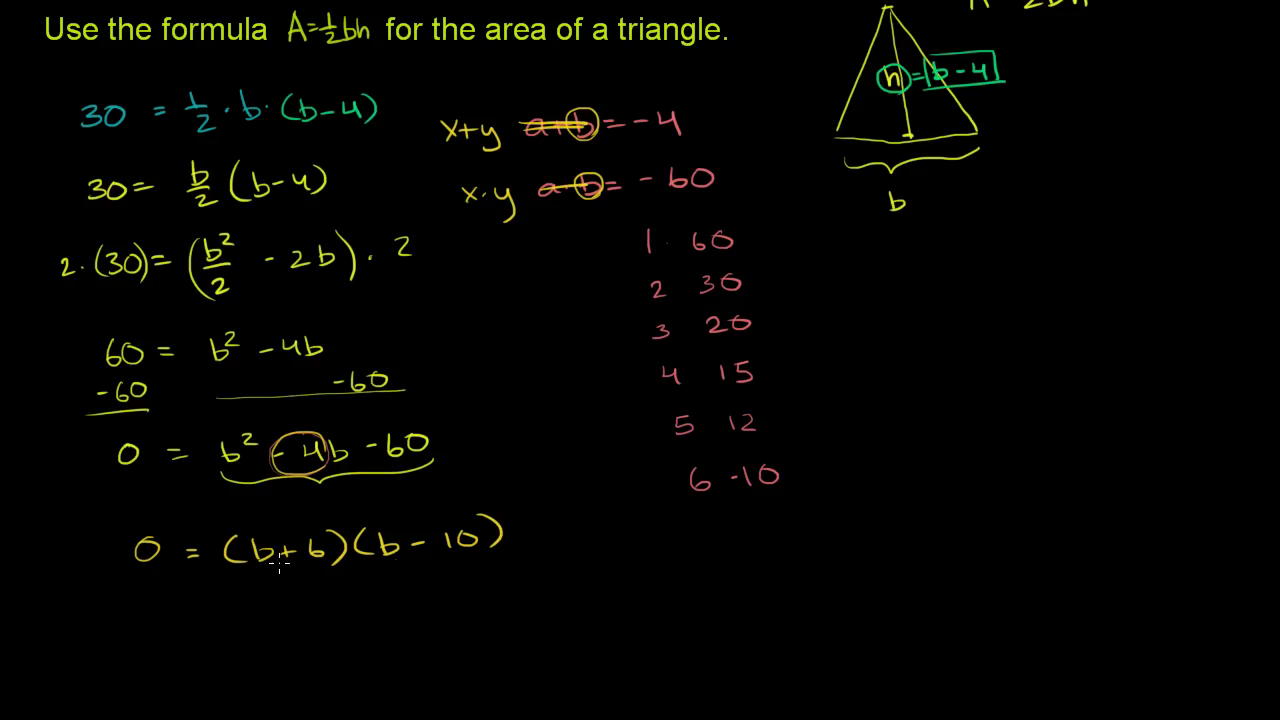 Use the formula A=½bh for the area of a triangle.
h = b-4
b
30 = ½ · b · (b-4)
30 = b/2 (b-4)
2·(30) = (b²/2 - 2b) · 2
60 = b² - 4b
-60 -60
0 = b² - 4b - 60
0 = (b+6)(b-10)
x+y a+b = -4
x·y a·b = -60
1 · 60
2 30
3 20
4 15
5 12
6 -10